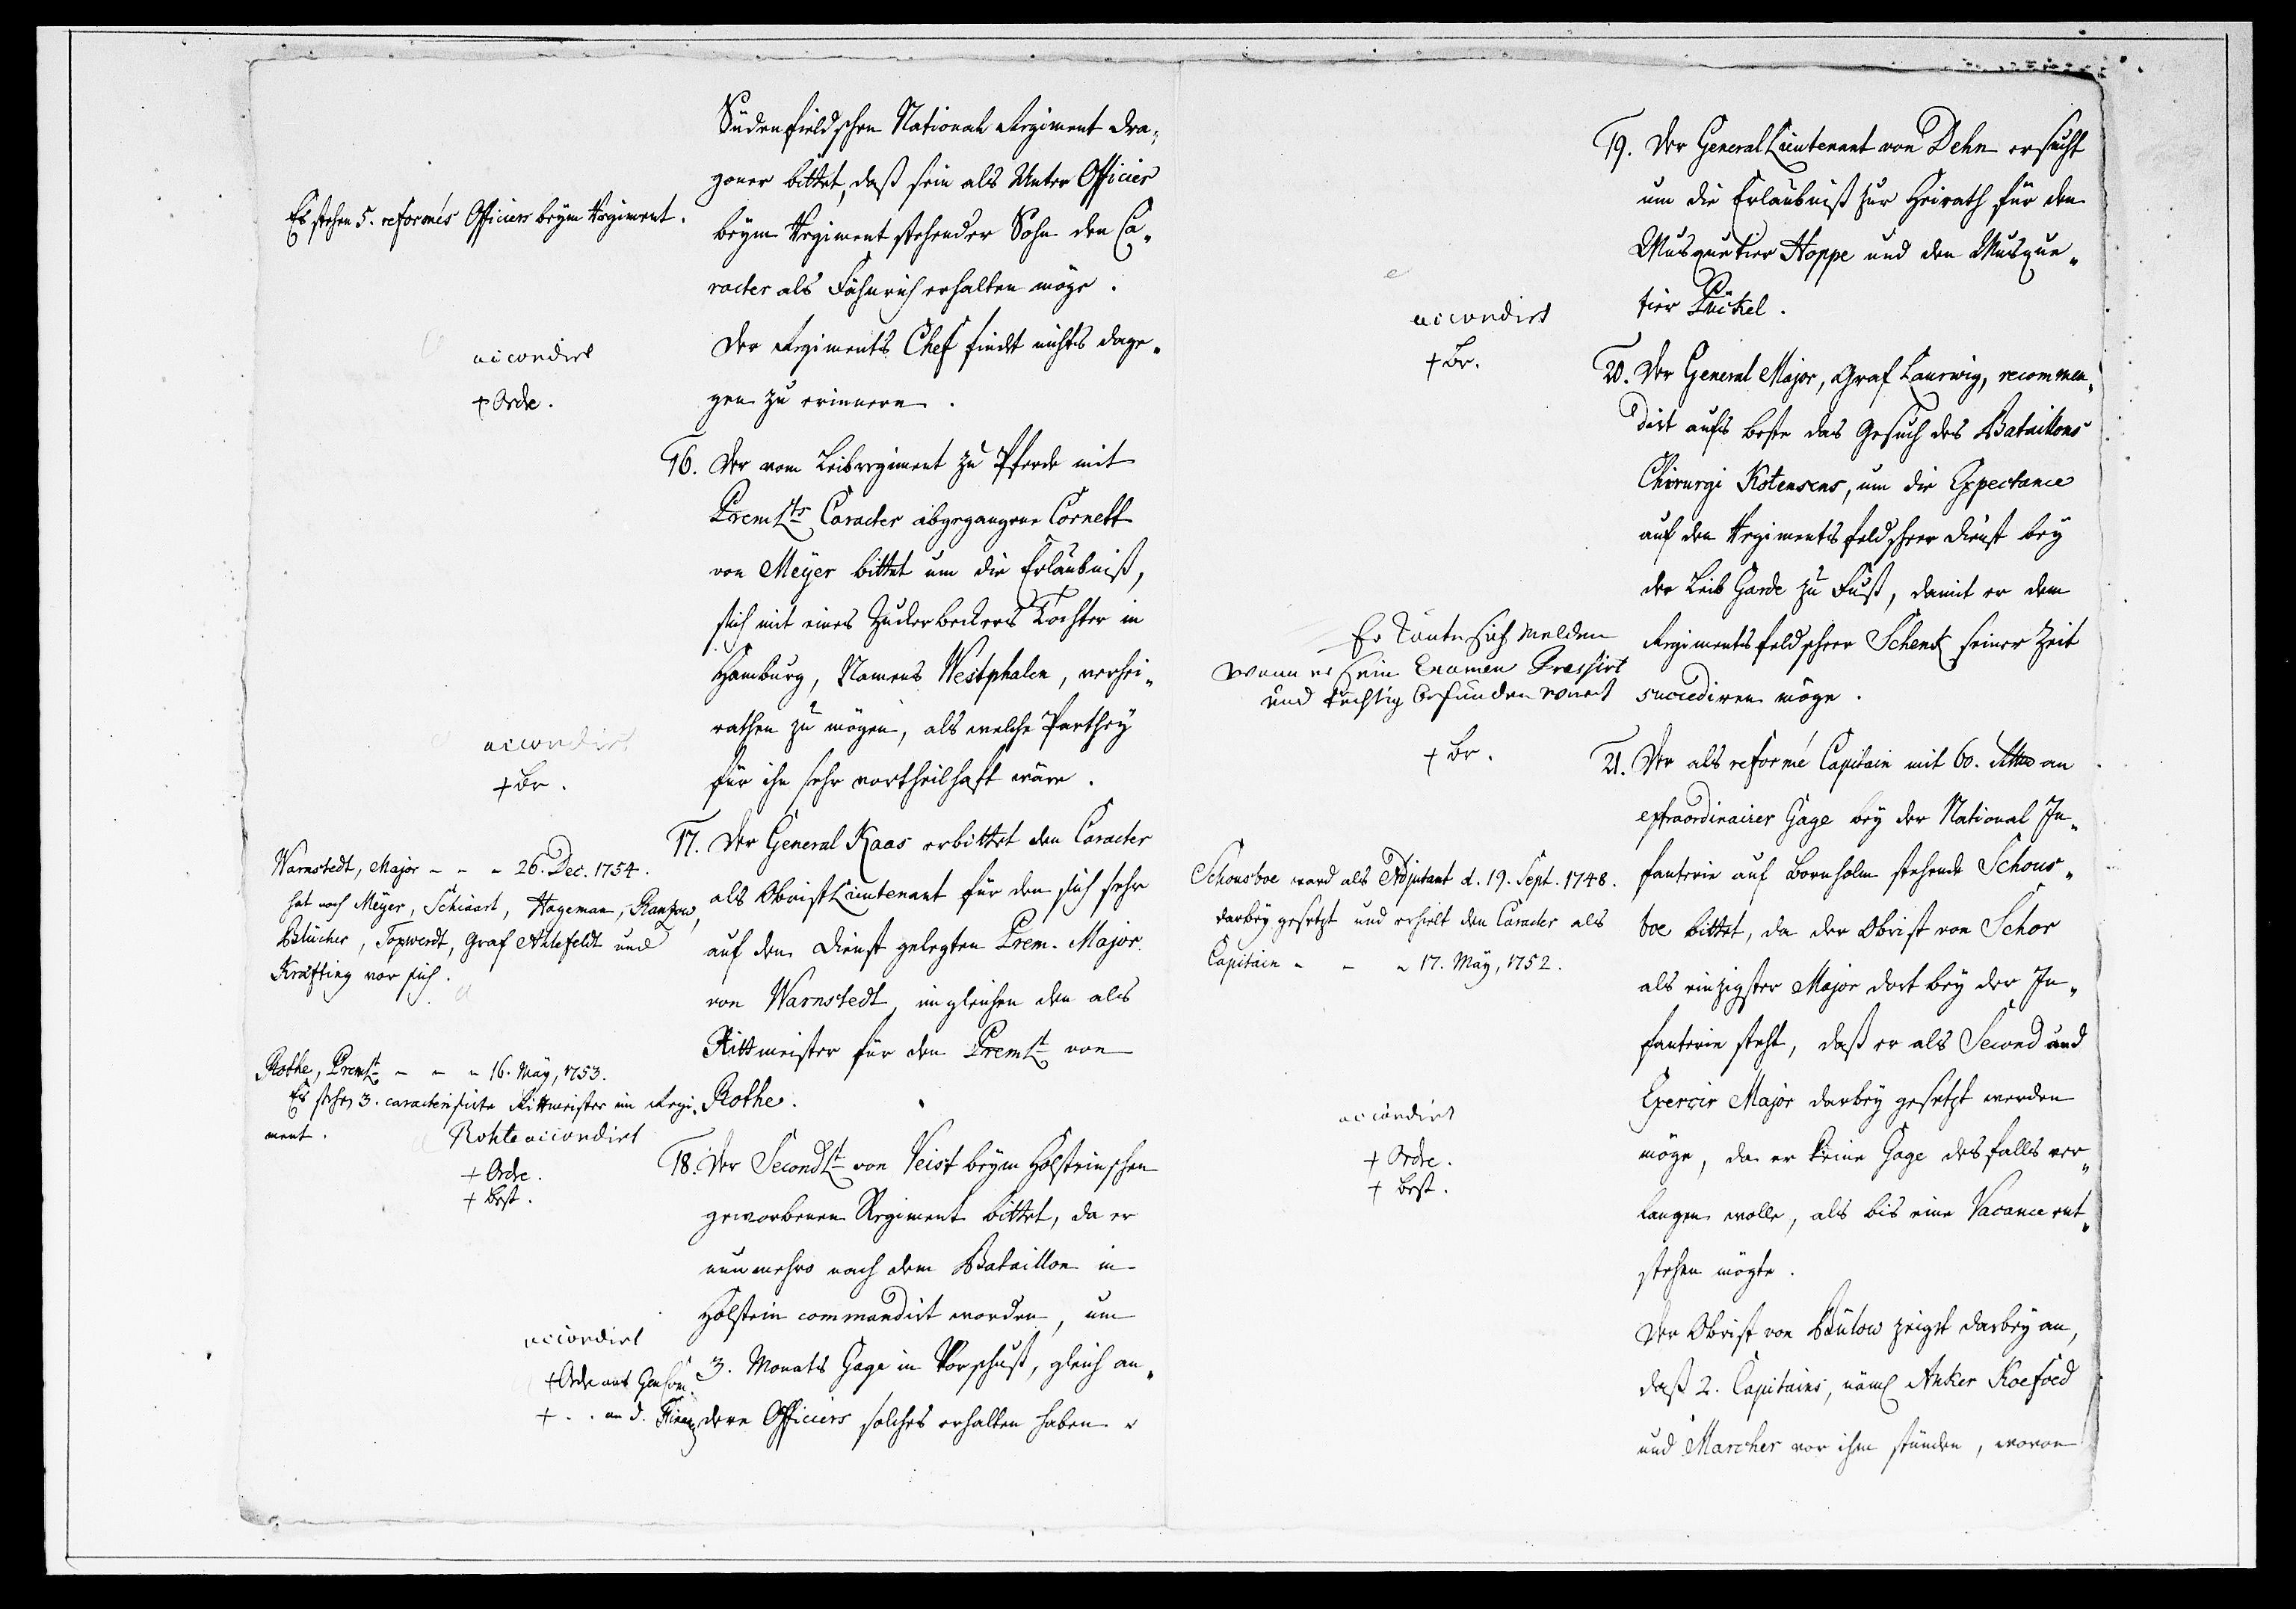 Südenfieldschen National Regiment Dra„
goner bittet, daß sein als Unter Officier
beym Regiment stehender Sohn den Ca„
racter als Fähnrich erhalten möge.
Es stehen 5. reformés Officiers beym Regiment.
Der Regiments Chef findet nichts dage„
gen zu erinnern.
accordirt
+ Ordr.
16. Der vom Leibregiment zu Pferde mit
Prem Lts Caracter abgegangene Cornett
von Meyer bittet um die Erlaubniß,
sich mit eines Zuckerbeckers Tochter in
Hamburg, Namens Westphalen, verhei„
rathen zu mögen, als welche Parthey
für ihn sehr vortheilhaft wäre.
accordirt
+ Br.
17. Der General Kaas erbittet den Caracter
als Obrist Lieutenant für den sich sehr
auf den Dienst gelegten Prem. Major
von Warnstedt, imgleichen den als
Rittmeister für den Prem Lt von
Rothe.
Warnstedt, Major - - - 26. Dec. 1754.
hat noch Meyer, Schinart, Hageman, Ranzow,
Blücher, Topwerdt, Graf Ahlefeldt und
Kräfting vor sich.
Rothe, Prem Lt - - - 16. May, 1753.
Es stehen 3. caracterisirte Rittmeister im Regi„
ment.
Rohte accordirt
+ Ordr.
+ Best.
18. Der Second Lt von Veist beym Holsteinschen
geworbenen Regiment bittet, da er
nunmehro nach dem Bataillon in
Holstein commandirt worden, um
3. Monats Gage in Vorschuß, gleich an„
dere Officiers solches erhalten haben.
accordirt
+ Ordr ans Gen Com.
+ . . an d. Finanz
19. Der General Lieutenant von Dehn ersucht
um die Erlaubniß zur Heirath für den
Musquetier Hoppe und den Musque„
tier Lückel.
accordirt
+ Br.
20. Der General Major, Graf Laurwig, recommen„
dirt aufs beste das Gesuch des Bataillons
Chirurgi Kotensens, um die Expectance
auf den Regimentsfeldscheer Dienst bey
der Leib Garde zu Fuß, damit er dem
Regimentsfeldscheer Schenk seiner Zeit
succediren möge.
Er könte sich melden
wann er sein Examen Prestirt
und tüchtig befunden wird
+ Br.
21. Der als reformé Capitain mit 60. Rthlr an
extraordinairer Gage bey der National In„
fanterie auf Bornholm stehende Schous„
boe bittet, da der Obrist von Schor
als einzigster Major dort bey der In„
fanterie steht, daß er als Second und
Exercir Major darbey gesetzt werden
möge, da er keine Gage desfalls ver„
langen wolle, als bis eine Vacance ent„
stehen mögte.
Schousboe ward als Adjutant d. 19. Sept. 1748.
darbey gesetzt und erhielt den Caracter als
Capitain - - - 17. May, 1752.
accordirt
+ Ordr.
+ Best.
Der Obrist von Bülow zeigt darbey an,
daß 2. Capitains, näml Anker Koefoed
und Marcher vor ihm stünden, wovon